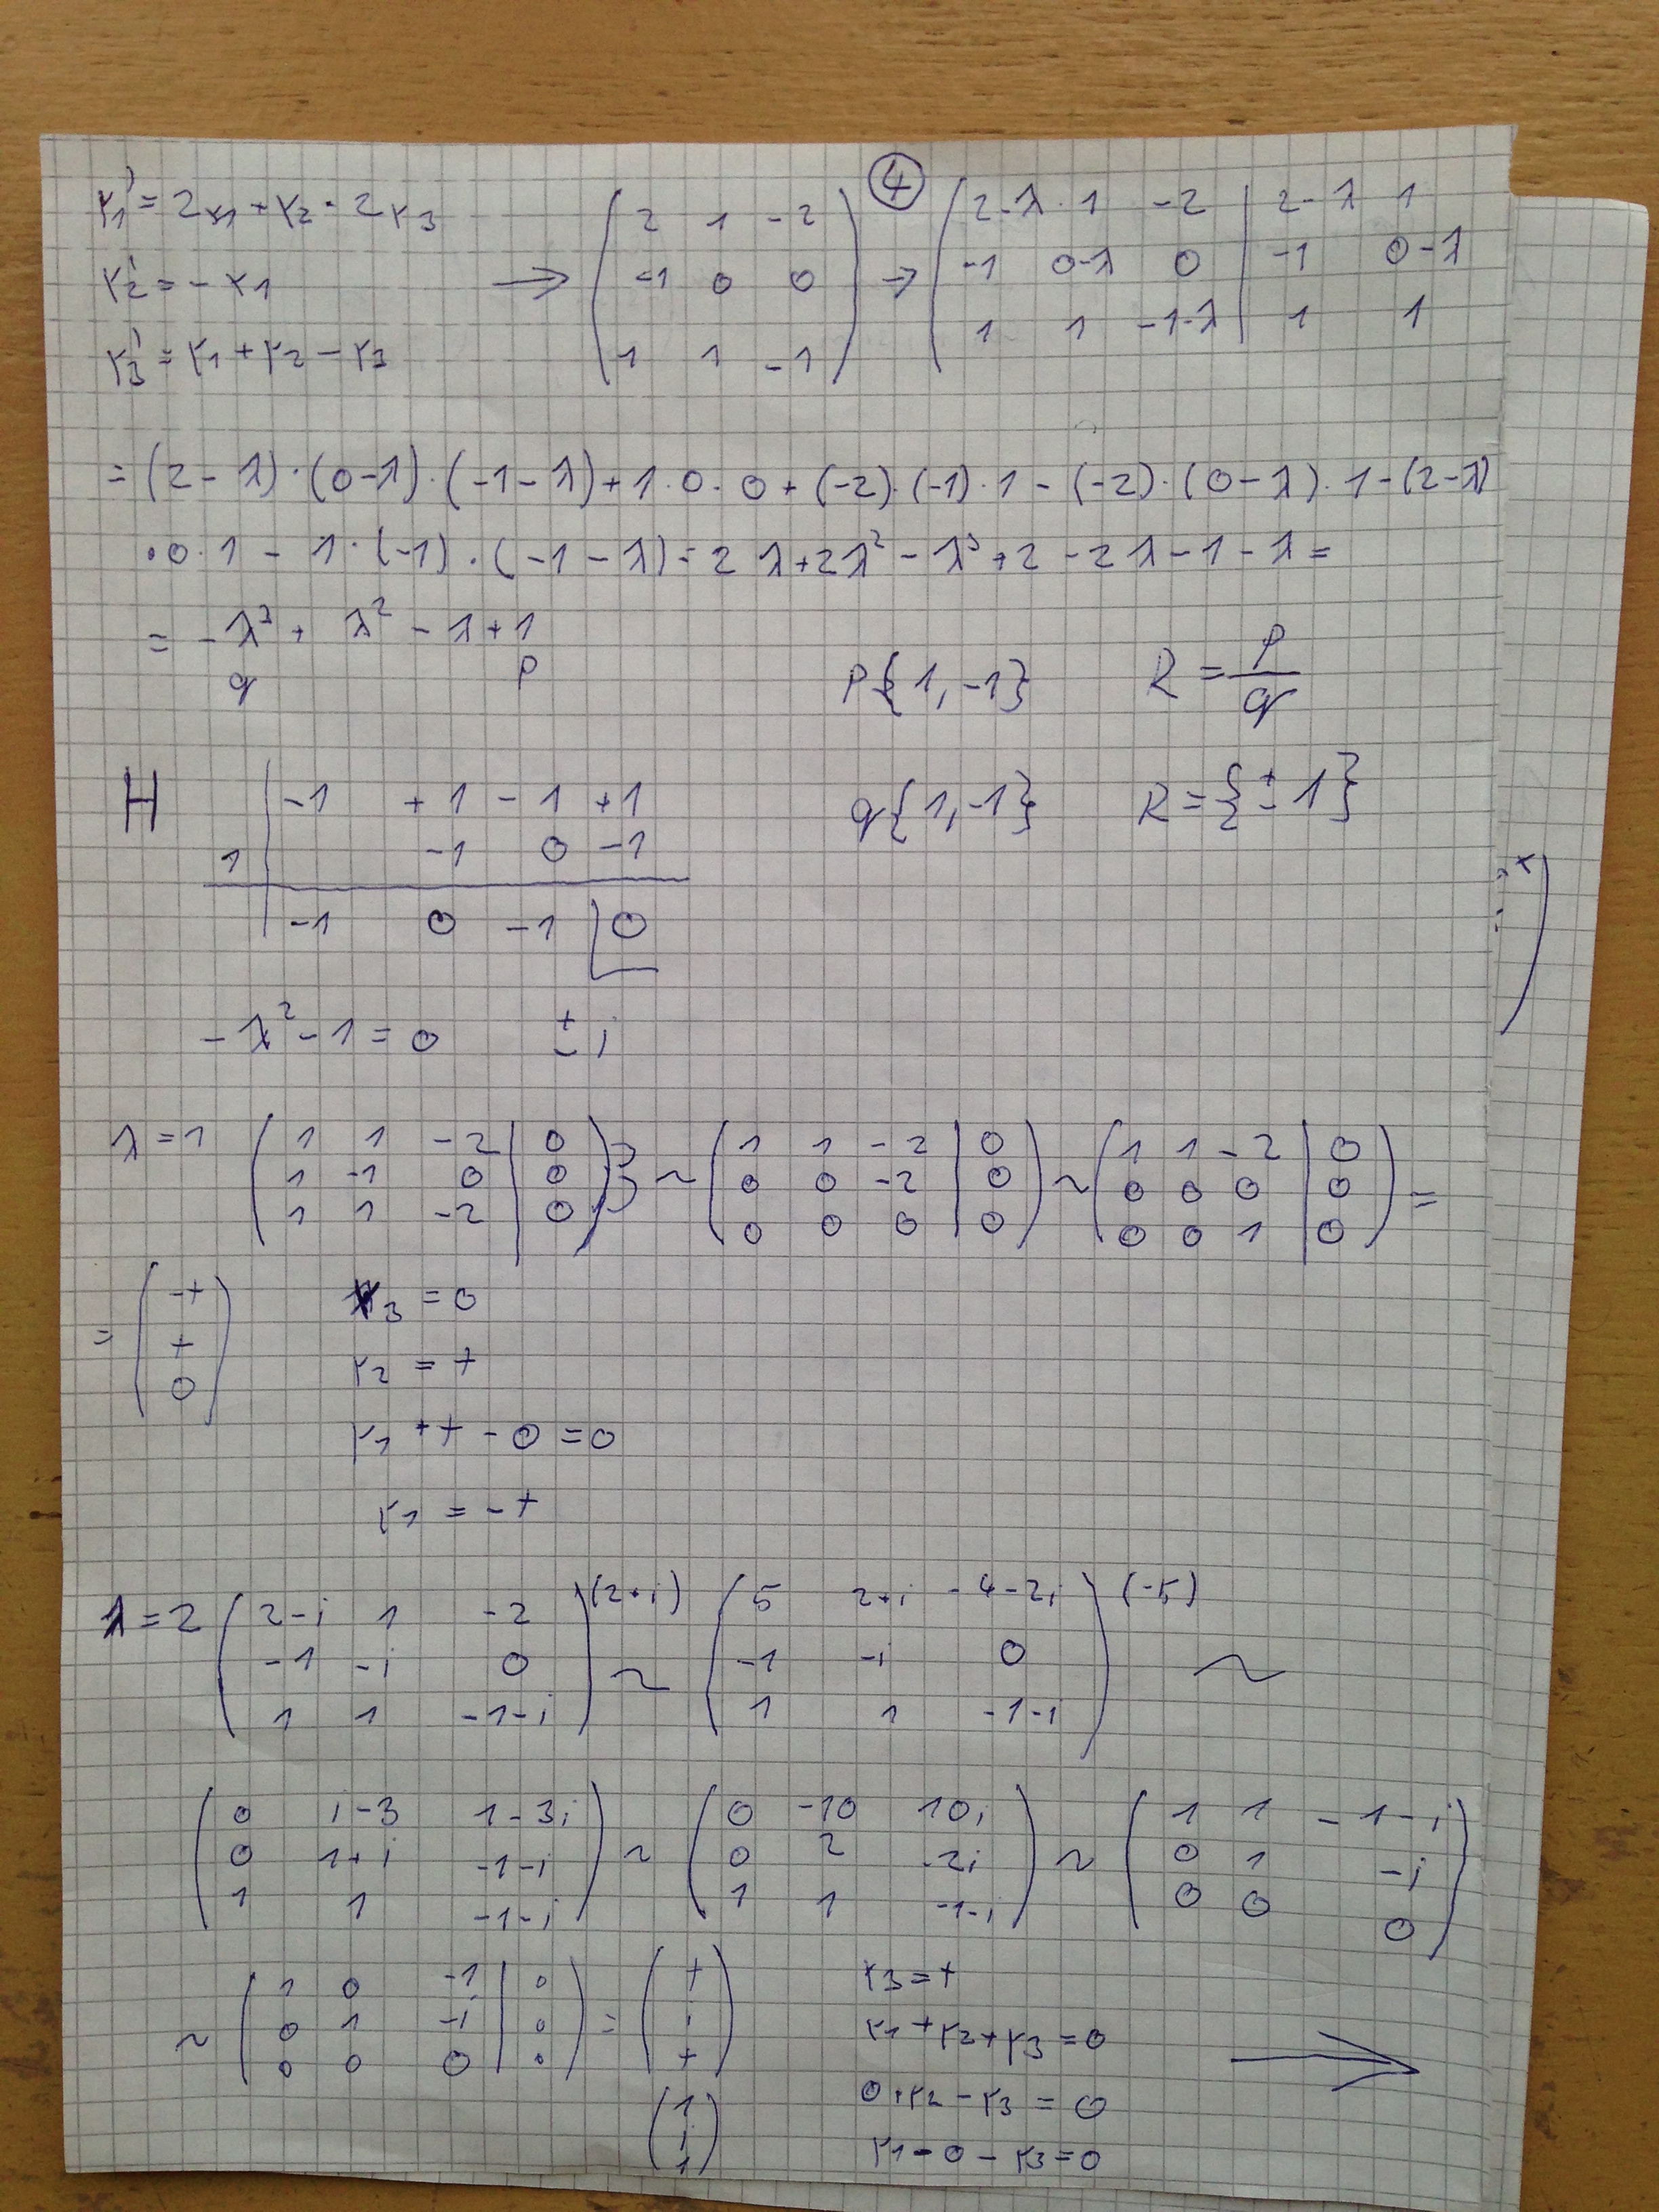 ④
x₁' = 2x₁ + x₂ - 2x₃
x₂' = - x₁
x₃' = x₁ + x₂ - x₃
→ ( 2 1 -2
-1 0 0
1 1 -1 )
→ ( 2-λ 1 -2 | 2-λ 1
-1 0-λ 0 | -1 0-λ
1 1 -1-λ | 1 1
= (2-λ)·(0-λ)·(-1-λ)+1·0·0+(-2)·(-1)·1-(-2)·(0-λ)·1-(2-λ)
·0·1 - 1·(-1)·(-1-λ) = 2λ+2λ²-λ³+2-2λ-1-λ =
= -λ³ + λ² - λ + 1
q p
P{1,-1} R = p/q
q{1,-1} R = {±1}
H | -1 +1 -1 +1
1 | -1 0 -1
| -1 0 -1 | 0
-λ² - 1 = 0 ± i
λ=1 ( 1 1 -2 | 0
1 -1 0 | 0
1 1 -2 | 0 )
~ ( 1 1 -2 | 0
0 0 -2 | 0
0 0 0 | 0 )
~ ( 1 1 -2 | 0
0 0 0 | 0
0 0 1 | 0 ) =
= ( -t
t
0 )
x₃ = 0
x₂ = t
x₁ + t - 0 = 0
x₁ = -t
λ=2 ( 2-i 1 -2
-1 -i 0
1 1 -1-i ) (2+i)
~ ( 5 2+i -4-2i
-1 -i 0
1 1 -1-i ) (-5) ~
( 0 i-3 1-3i
0 1+i -1-i
1 1 -1-i )
~ ( 0 -10 10i
0 2 -2i
1 1 -1-i )
~ ( 1 1 -1-i
0 1 -i
0 0 0 )
~ ( 1 0 -1 | 0
0 1 -i | 0
0 0 0 | 0 )
= ( t
i
t )
( 1
i
1 )
x₃ = t
x₁ + x₂ + x₃ = 0
0 + x₂ - x₃ = 0
x₁ - 0 - x₃ = 0
→